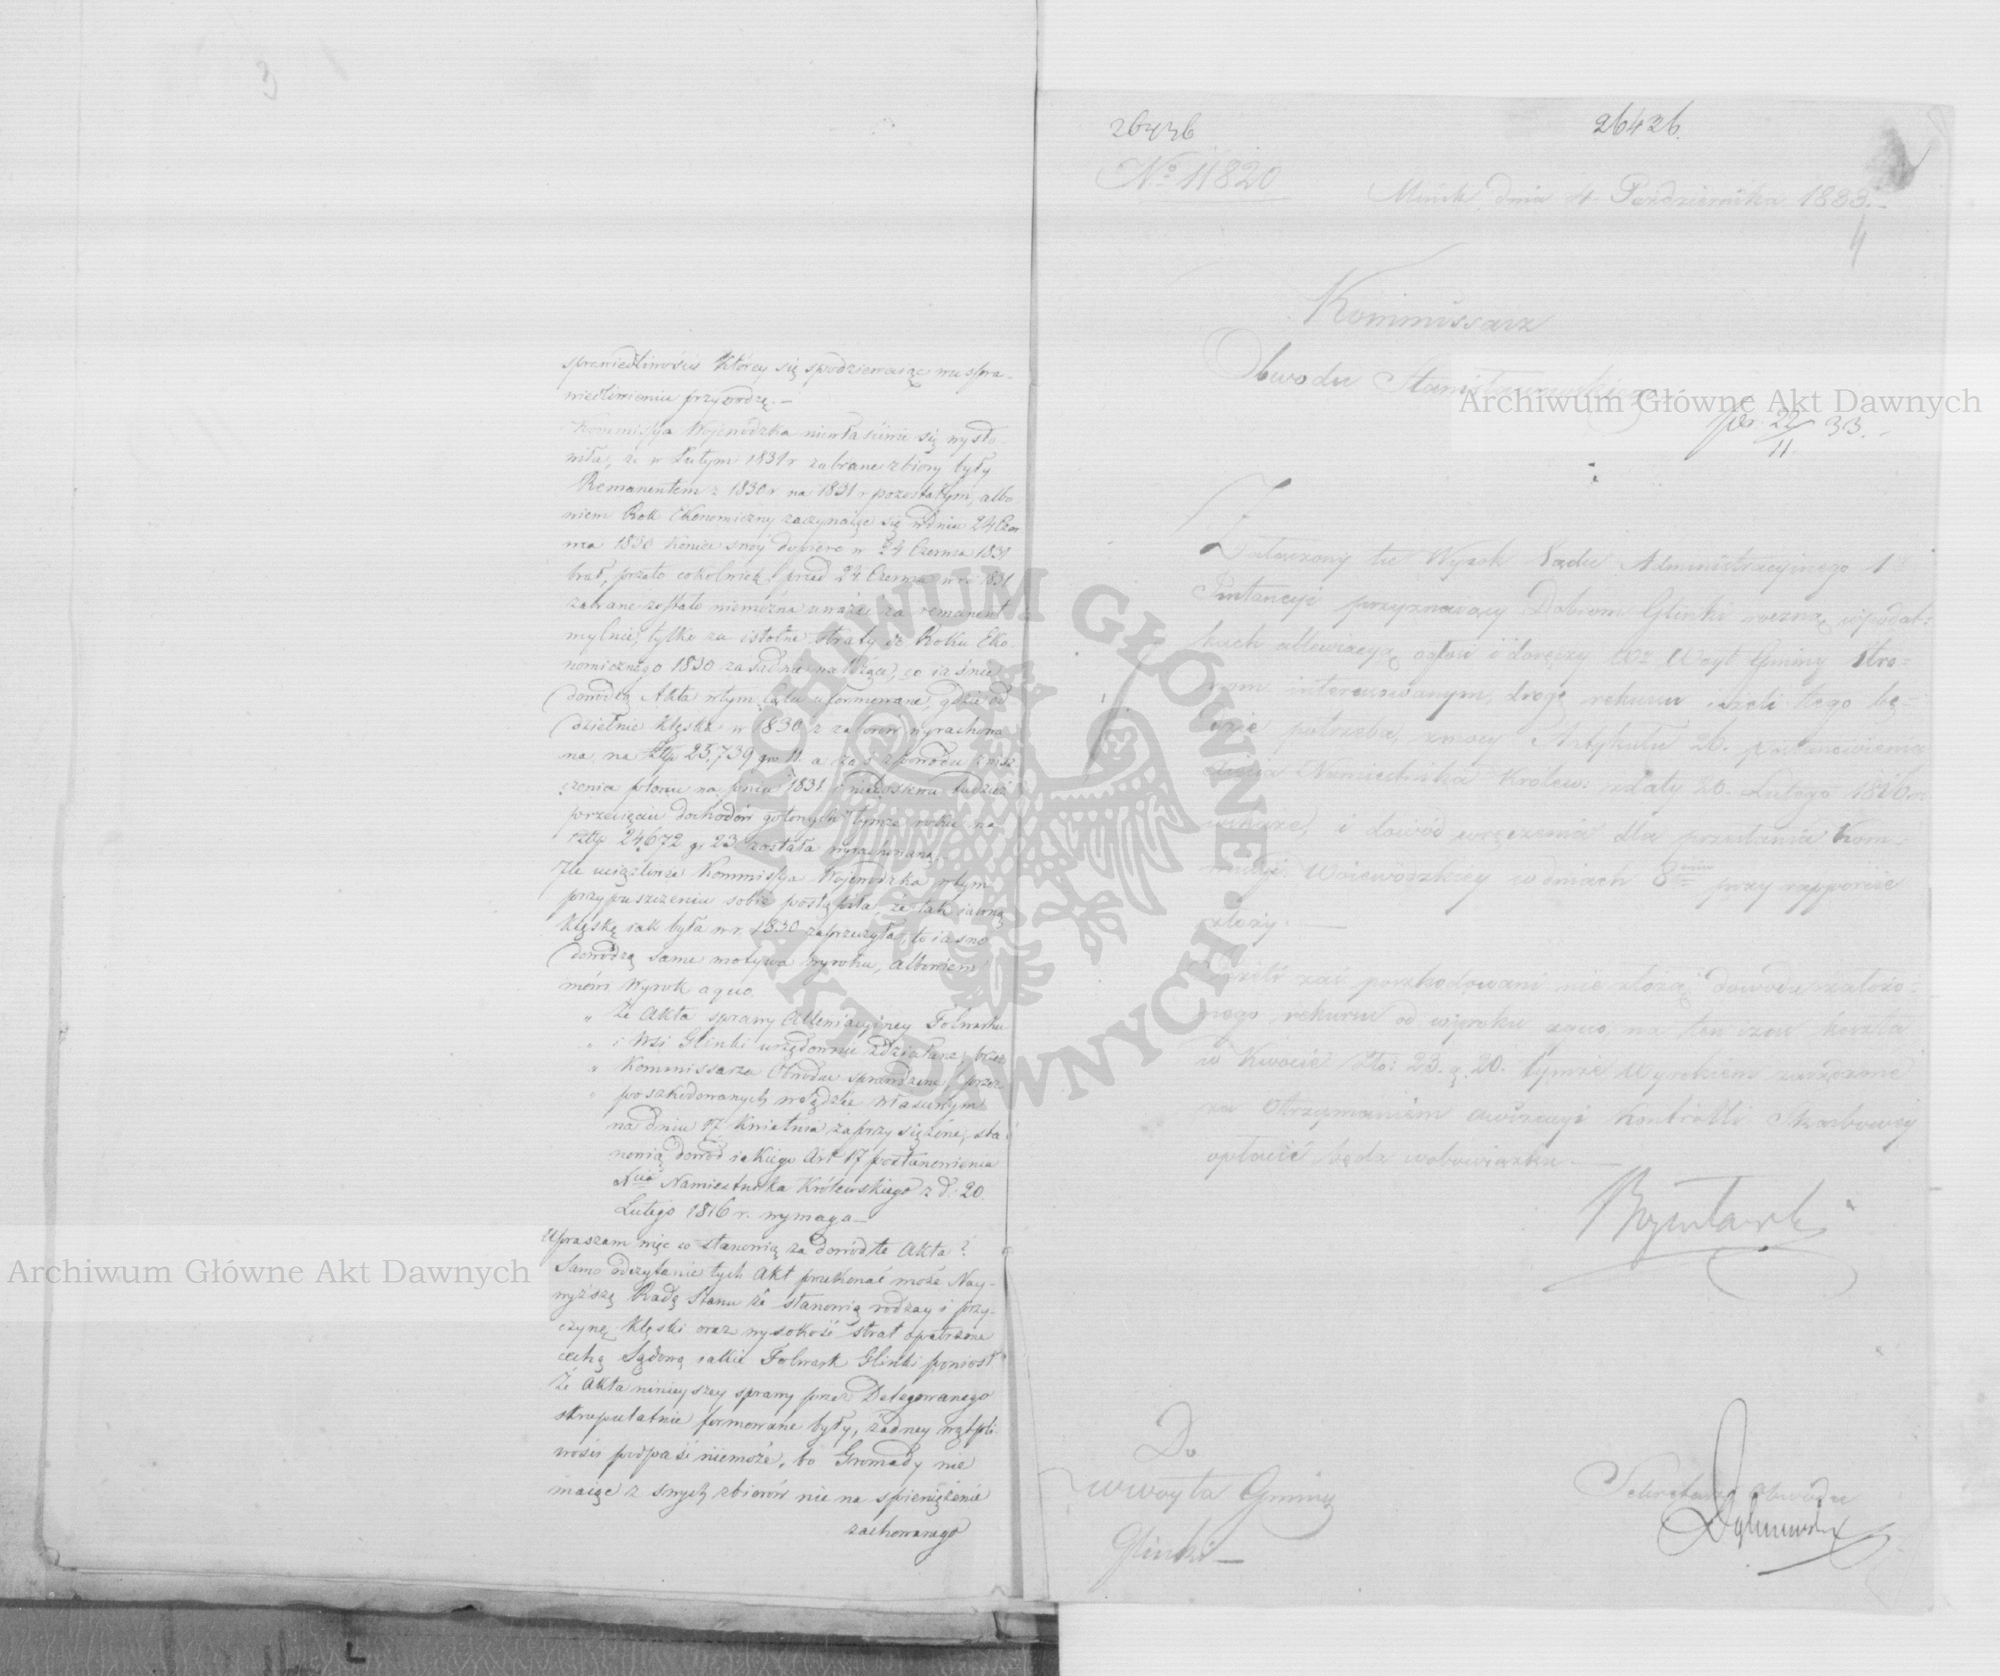 3
sprawiedliwości którey się spodziewaiąc na uspra-
wiedliwienie przywodzę.—
Kommissya Wojewódzka niewłaściwie się wysło-
wiła, że w Lutym 1831 r zabrane zbiory były
Remanentem z 1830 r. na 1831 r pozostałym, albo-
wiem Rok Ekonomiczny zaczynaiąc się w dniu 24 Czer
wca 1830 koniec swóy dopiero w 24 Czerwca 1831
brał, przeto cokolwiek przed 24 Czerwca w r. 1831
zabrane zostało niemożna uważać za remanent
mylnie, tylko za istotne straty do Roku Eko-
nomicznego 1830 zasadnie należące, co iaśnie
dowodzą Akta w tym celu uformowane, gdzie od
dzielnie klęska w 1830 z zaborów wyrachowa
na na Złp 25,739 gr 11. a zaś z powodu znisz
czenia plonu na pniu 1831 i niedosiewu tudzież
przecięciu dochodów gotowych tymże roku na
Złp 24,672 g. 23 została wyrachowaną.—
Ile uciążliwie Kommissya Wojewódzka w tym
przypuszczeniu sobie postąpiła, że tak iawną
klęskę iak była w r. 1830 zaprzeczyła, to iasno
dowodzą same motywa wyroku, albowiem
mówi Wyrok a quo.
„ Że Akta sprawy Allewiacyiney Folwarku
„ i Wsi Glinki urzędownie zdziałane, przez
„ Kommissarza Obwodu sprawdzone, przez
„ poszkodowanych względzie własnym
na dniu 17 Kwietnia zaprzysiężone, sta
nowią dowód iakiego Art 17 postanowienia
Xcia Namiestnika Królewskiego z d. 20.
Lutego 1816 r. wymaga—
Upraszam więc co stanowią za dowód te Akta?
Samo odczytanie tych Akt przekonać może Nay-
wyższą Radę Stanu że stanowią rodzay i przy-
czynę klęski oraz wysokość strat opatrzone
cechą Sądową iakie Folwark Glinki poniosł
Że Akta ninieyszey sprawy przez Delegowanego
skrupulatnie formowane były, żadney wątpli-
wości podpaść niemoże, bo Gromady nie
maiąc z swych zbiorów nic na spieniężenie
zachowanego
26426
26426.
No 11820
Mińsk dnia 4 Października 1833.—
4
Kommissarz
Obwodu Stanisławowskiego
pr. 22/11 33.—
Załączony tu Wyrok Sądu Administracyjnego 1ey
Instancyi przyznaiący Dobrom Glinki roczną w podat-
kach allewiacyą ogłosi i doręczy Wny Woyt Gminy Stro-
nom interessowanym, drogę rekursu ieżeli tego bę-
dzie potrzeba, z mocy Artykułu 26. postanowienia
Xięcia Namiestnika Królew: z daty 20. Lutego 1816 r.
wskaże, i dowód wręczenia dla przesłania Kom-
missyi Woiewódzkiey w dniach 8miu przy rapporcie
złoży.—
Jeżeli zaś poszkodowani nie złożą dowodu założo-
nego rekursu od wyroku a quo, na ten czas koszta
w kwocie Złp: 23. g. 20. tymże Wyrokiem zasądzone
za otrzymaniem assygnacyi Kontrolli Skarbowey
opłacić będą w obowiązku.—
Do
W Woyta Gminy
Glinki—
Sekretarz Obwodu
Archiwum Główne Akt Dawnych
Archiwum Główne Akt Dawnych
ARCHIWUM GŁÓWNE
AKT DAWNYCH